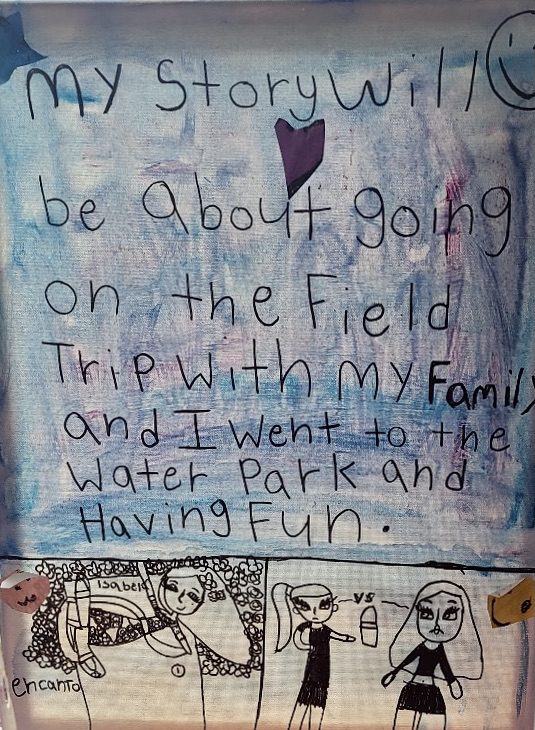 My Story Will
be About going
on the Field
Trip With My Family
and I Went to the
Water Park and
Having Fun.
ISabela
VS
encanto